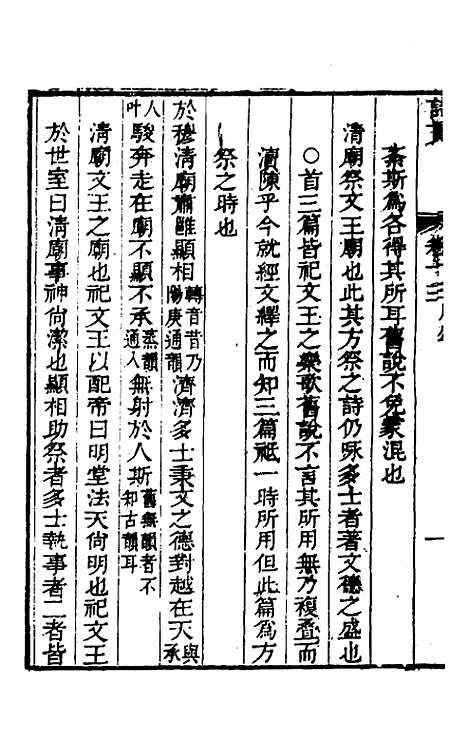 紊斯為各得其所耳舊說不免蒙混也
清廟祭文王廟也此其方祭之詩仍咏多士者著文德之盛也
○首三篇皆祀文王之樂歌舊說不言其所用無乃複疊而
瀆陳乎今就經文釋之而知三篇祗一時所用但此篇為方
祭之時也
於穆清廟肅雝顯相轉音昔乃陽庚通韻濟濟多士秉文之德對越在天承與
人叶駿奔走在廟不顯不承蒸韻通入無射於人斯舊無韻者不知古韻耳
清廟文王之廟也祀文王以配帝曰明堂法天尚明也祀文王
於世室曰清廟事神尚潔也顯相助祭者多士執事者二者皆